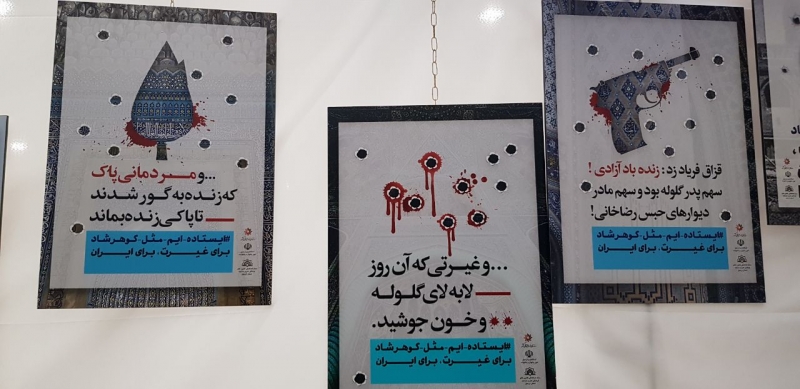 ...و مردمانی پاک
که زنده به گور شدند
تا پاکی زنده بماند
#ایستاده-ایم-مثل-گوهرشاد
برای غیرت، برای ایران
...و غیرتی که آن روز
لابه لای گلوله
و خون جوشید.
#ایستاده-ایم-مثل-گوهرشاد
برای غیرت، برای ایران
قزاق فریاد زد: زنده باد آزادی!
سهم پدر گلوله بود و سهم مادر
دیوارهای حبس رضاخانی!
#ایستاده-ایم-مثل-گوهرشاد
برای غیرت، برای ایران